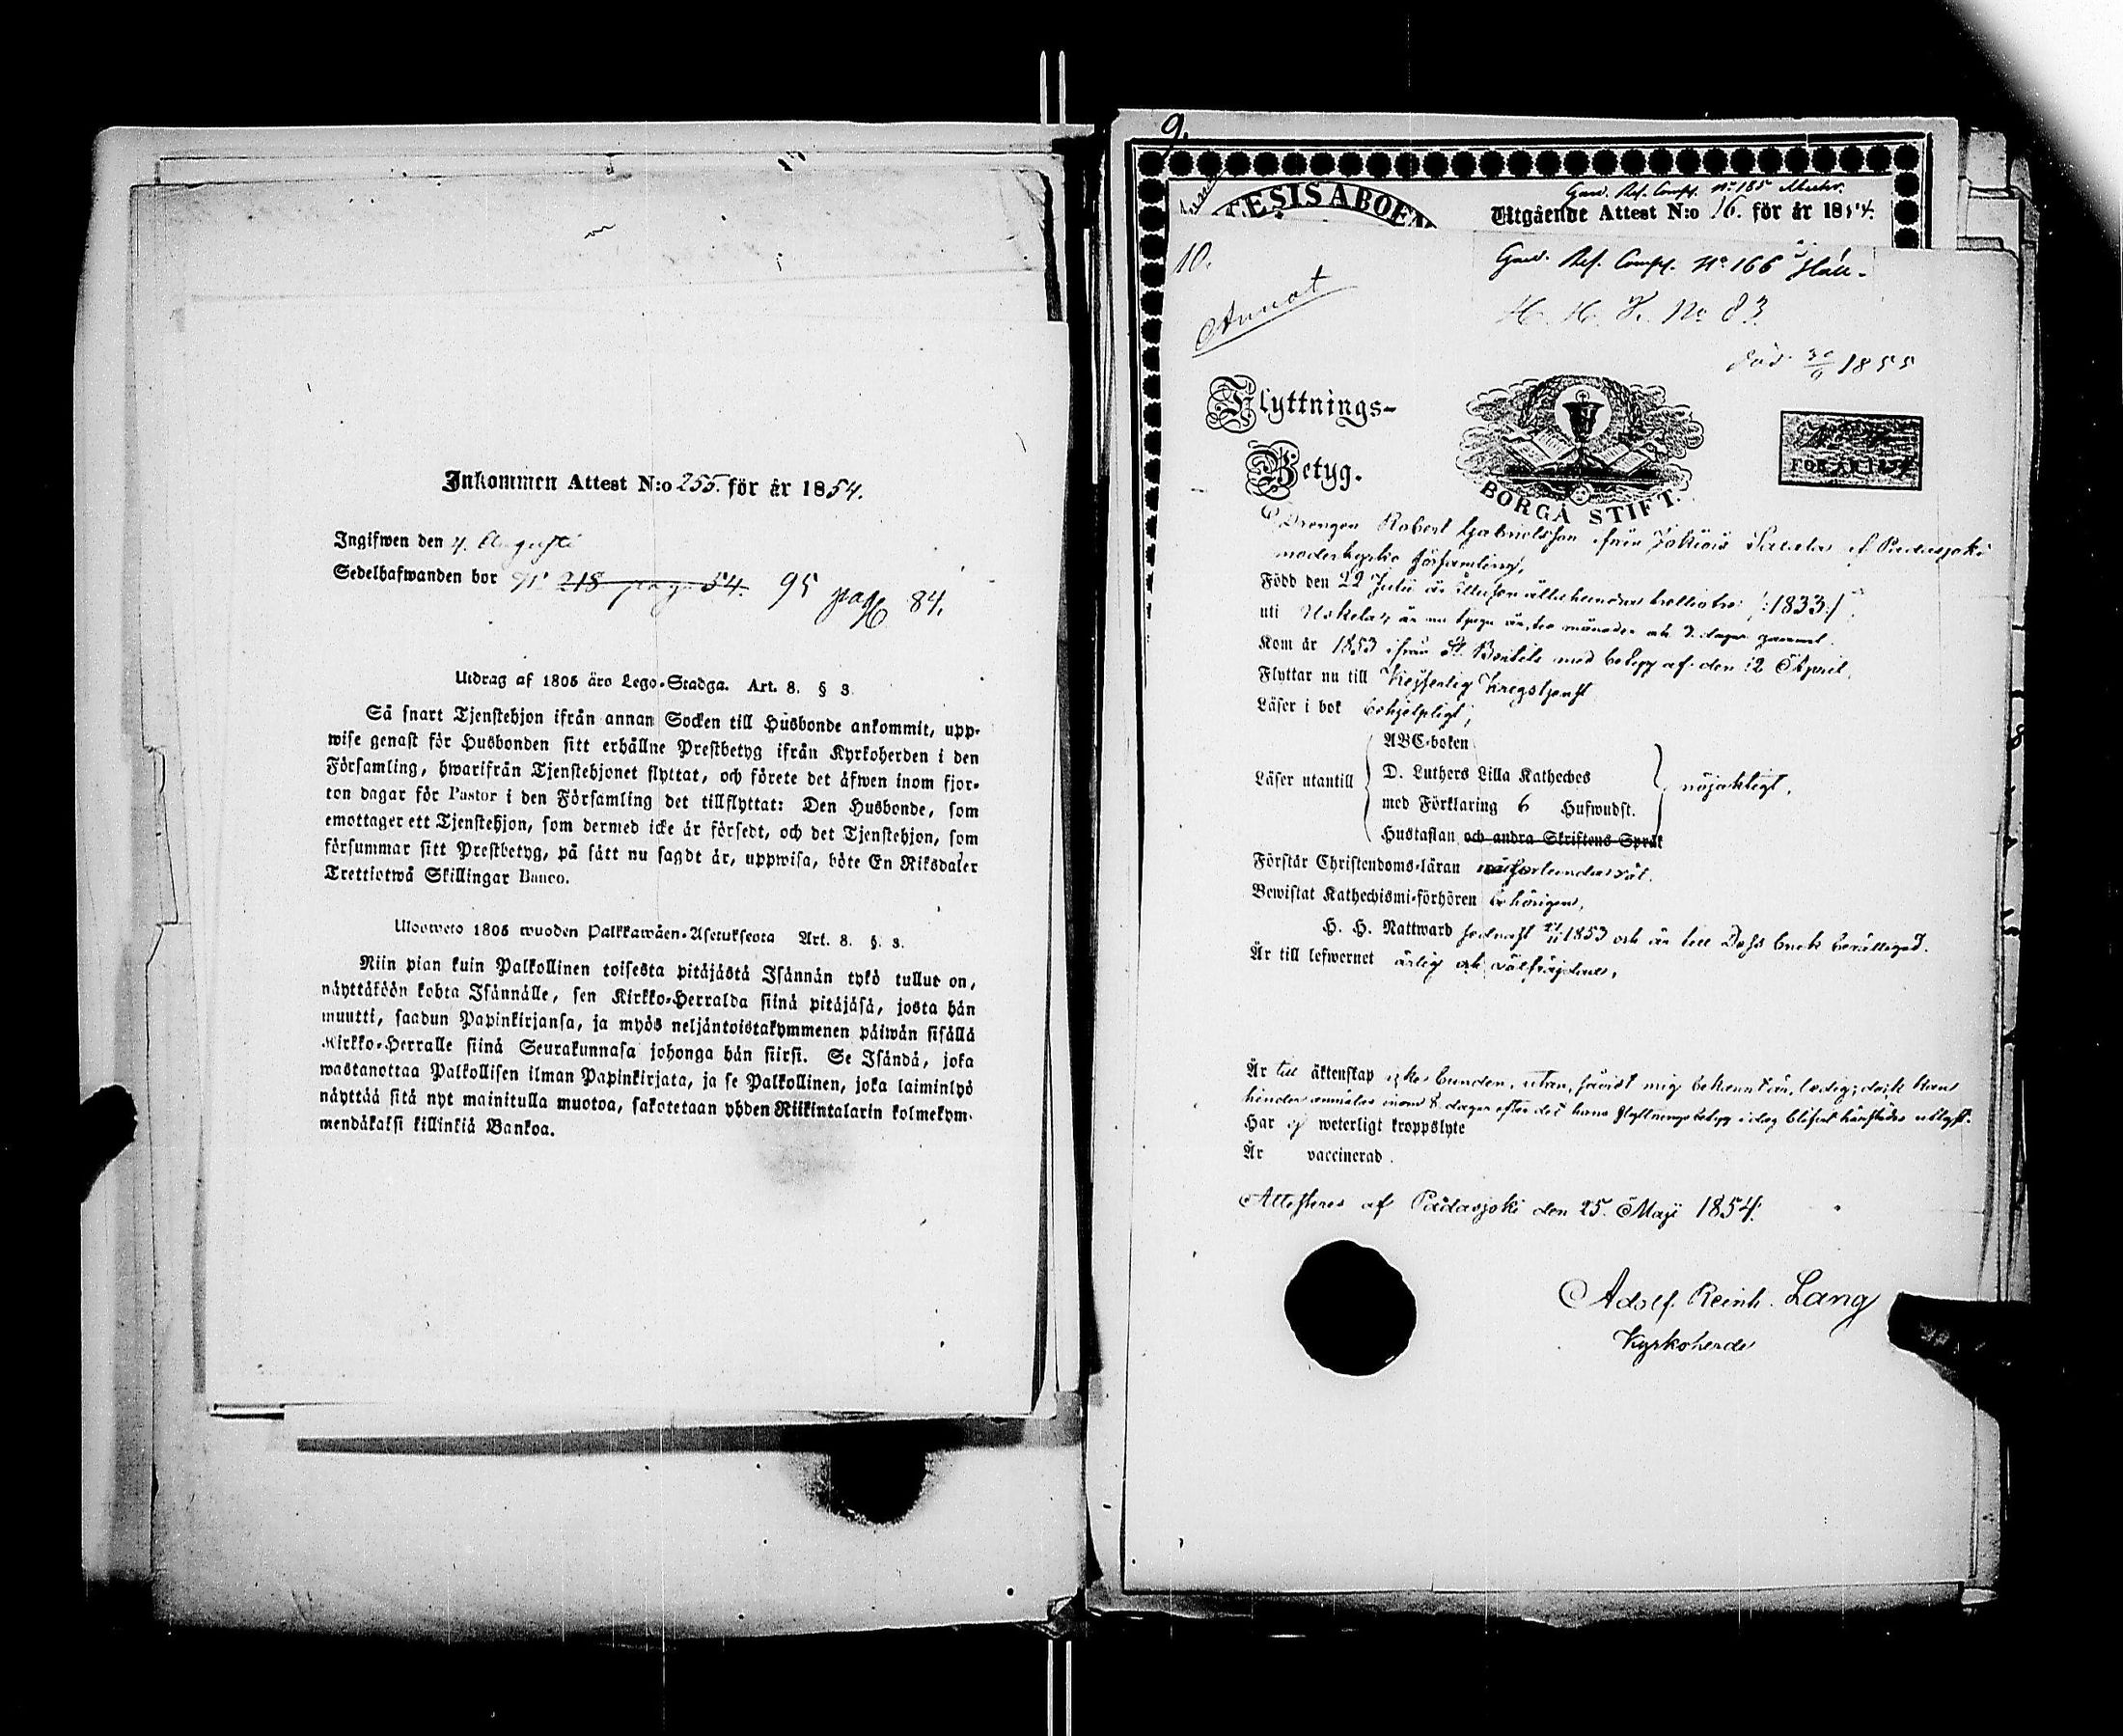 Inkommen Attest N:o 255. för år 1854.
Ingifwen den 4. Augusti
Sedelhafwanden bor N:o 218 pag. 54. 95 pag 84.
Utdrag af 1805 års Lego-Stadga. Art. 8. § 3.
Så snart Tjenstehjon ifrån annan Socken till Husbonde ankommit, upp-
wise genast för Husbonden sitt erhållne Prestbetyg ifrån Kyrkoherden i den
Församling, hwarifrån Tjenstehjonet flyttat, och förete det äfwen inom fjor-
ton dagar för Pastor i den Församling det tillflyttat: Den Husbonde, som
emottager ett Tjenstehjon, som dermed icke är försedt, och det Tjenstehjon, som
försummar sitt Prestbetyg, på sätt nu sagdt är, uppwisa, böte En Riksdaler
Trettiotwå Skillingar Banco.
Ulosweto 1805 wuoden Palkkawäen-Asetuksesta Art. 8. §. 3.
Niin pian kuin Palkollinen toisesta pitäjästä Isännän tykö tullut on,
näyttäköön kohta Isännälle, sen Kirkko-Herralda siinä pitäjäsä, josta hän
muutti, saadun Papinkirjansa, ja myös neljäntoistakymmenen päiwän sisällä
Kirkko-Herralle siinä Seurakunnasa johonga hän siirsi. Se Isändä, joka
wastanottaa Palkollisen ilman Papinkirjata, ja se Palkollinen, joka laiminlyö
näyttää sitä nyt mainitulla muotoa, sakotetaan yhden Riikintalarin kolmekym-
mendäkaksi killinkiä Bankoa.
9.
ESIS ABOEN
Gard. Ref. Comp. N:o 185
Utgående Attest N:o 16. för år 1854.
10.
Gard. Ref. Comp. N:o 166
Annot
H. H. K. No 83.
död 30/9 1855
Flyttnings-
Betyg.
BORGÅ STIFT.
FÖR ÅR 1854
Drengen Robert Gabrielsson ifrån Jokiois i Padasjoki
moderkyrko församling,
Född den 22 Julii år Adertonhundradetrettiotre /:1833:/
uti Uskela, är nu tjugu år, tio månader och 3 dagar gammal.
Kom år 1853 ifrån St. Bertils med betyg af den 12 April.
Flyttar nu till Kejserlig Krigstjenst
Läser i bok behjelpligt,
Läser utantill
ABC-boken
D. Luthers Lilla Katheches
med Förklaring 6 Hufwudst.
Hustaflan och andra Skriftens Språk
nöjaktigt,
Förstår Christendoms-läran
Bewistat Kathechismi-förhören behörigen,
H. H. Nattward sednast 27/11 1853 och är till Dess bruk berättigad.
Är till lefwernet ärlig och välfräjdad,
Är till äktenskap icke bunden, utan, såvidt mig bekannt är, ledig; dock hans
hinder anmälas inom 8 dagar efter det hans flyttningsbetyg i dag blifvit härstädes utlyst.
Har ej weterligt kroppslyte
Är vaccinerad.
Attesteras af Padasjoki den 25. Maji 1854.
Adolf Reinh. Lang
Kyrkoherde